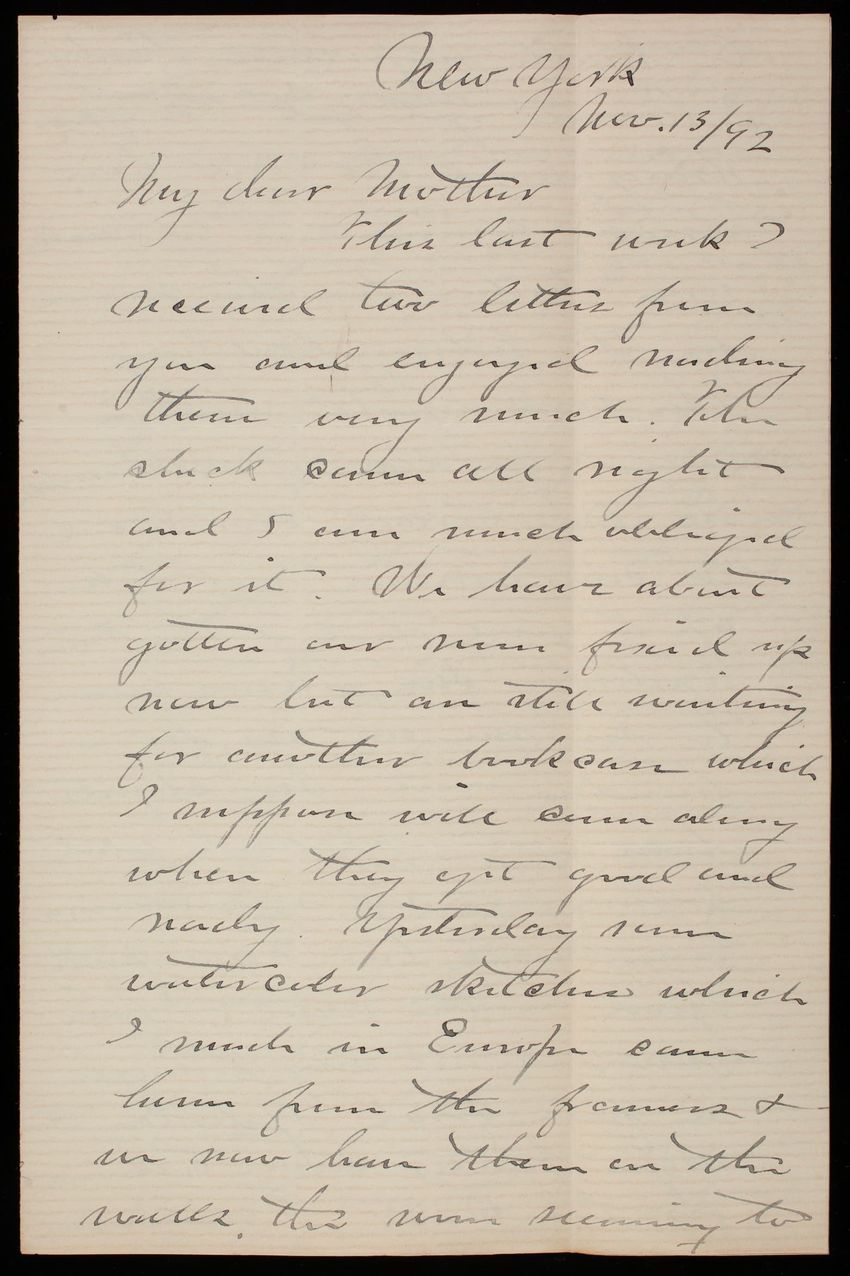 New York
Nov. 13/92
My dear Mother
This last week I
received two letters from
you and enjoyed reading
them very much. The
check came all right
and I am much obliged
for it. We have about
gotten our room fixed up
now but are still waiting
for another bookcase which
I suppose will come along
when they get good and
ready. Yesterday some
watercolor sketches which
I made in Europe came
home from the framers &
we now have them on the
walls, the room seeming to